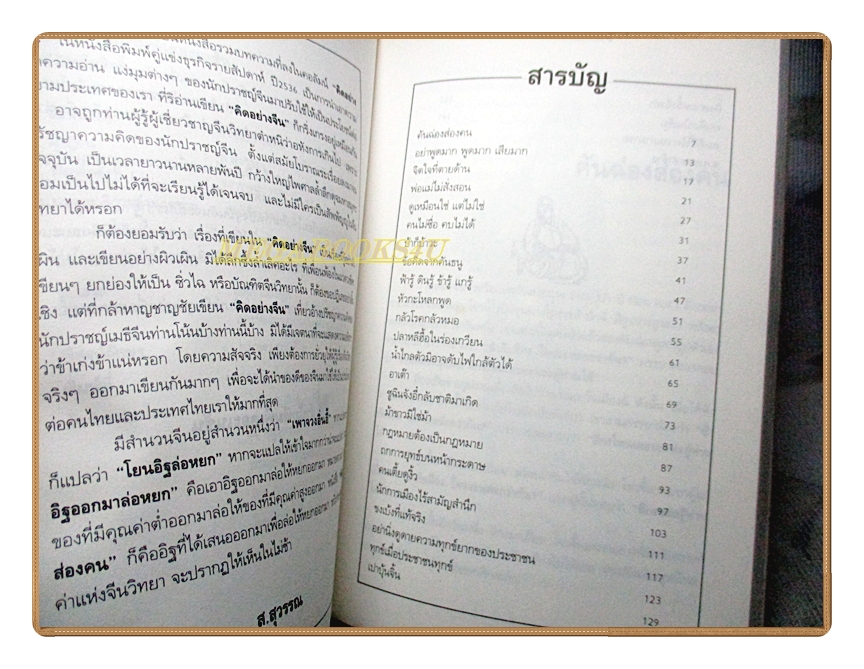 ในหนังสือพิมพ์คู่แข่งธุรกิจรายสัปดาห์ ปี2536 เป็นการนำเอาความ
ความอ่าน แง่มุมต่างๆ ของนักปราชญ์จีนมาปรับใช้ให้เป็นประโยชน์ต่อ
ยามประเทศของเรา ที่ริอ่านเขียน "คิดอย่างจีน" ก็กริ่งเกรงอยู่เหมือนกัน
อาจถูกท่านผู้รู้ผู้เชี่ยวชาญจีนวิทยาตำหนิว่าอหังการเกินไป เพราะ
รัชญาความคิดของนักปราชญ์จีน ตั้งแต่สมัยโบราณ
จจุบัน เป็นเวลายาวนานหลายพันปี กว้างใหญ่ไพศาลล้ำลึก
อมเป็นไปไม่ได้ที่จะเรียนรู้ได้เจนจบ และไม่มีใครเป็น
ทยาได้หรอก
ก็ต้องยอมรับว่า เรื่องที่เขียนใน "คิดอย่างจีน"
ผิน และเขียนอย่างผิวเผิน มิได้ลึกซึ้งล้ำเลิศอะไร ที่เพื่อนพ้อง
เขียนๆ ยกย่องให้เป็น ซิ่วไฉ หรือบัณฑิตจีนวิทยานั้น
เชิง แต่ที่กล้าหาญชาญชัยเขียน "คิดอย่างจีน" เที่ยวอ้างปรัชญาความคิด
นักปราชญ์เมธีจีนท่านโน้นบ้างท่านนี้บ้าง มิได้มีเจตนาที่จะแสดง
ว่าข้าเก่งข้าแน่หรอก โดยความสัจจริง เพียงต้องการยั่วยุให้ผู้รู้
จริงๆ ออกมาเขียนกันมากๆ เพื่อจะได้นำของดีของจีนมาใช้ให้เป็นประโยชน์
ต่อคนไทยและประเทศไทยเราให้มากที่สุด
มีสำนวนจีนอยู่สำนวนหนึ่งว่า "เพาจวงอิ่นอี้"
ก็แปลว่า "โยนอิฐล่อหยก" หากจะแปลให้เข้าใจมากกว่า
อิฐออกมาล่อหยก" คือเอาอิฐออกมาล่อให้หยกออกมา
ของที่มีคุณค่าต่ำออกมาล่อให้ของที่มีคุณค่าสูงออกมา
ส่องคน" ก็คืออิฐที่ได้เสนอออกมาเพื่อล่อให้หยกออกมา
ค่าแห่งจีนวิทยา จะปรากฏให้เห็นในไม่ช้า
ส.สุวรรณ
MEGABOOKS4U
สารบัญ
คันฉ่องส่องคน 7
อย่าพูดมาก พูดมาก เสียมาก 13
จิตใจที่ตายด้าน 17
พ่อแม่ไม่สั่งสอน 21
ดูเหมือนใช่ แต่ไม่ใช่ 27
คนไม่ซื่อ คบไม่ได้ 31
ชำกี่ชำระ 37
ข้อคิดจากคันธนู 41
ฟ้ารู้ ดินรู้ ข้ารู้ แกรู้ 47
หัวกะโหลกพูด 51
กลัวโรคกลัวหมอ 55
ปลาหลีฮื้อในร่องเกวียน 61
น้ำไกลตัวมิอาจดับไฟใกล้ตัวได้ 65
อาเต๊า 69
ชูฉินจังอี่กลับชาติมาเกิด 73
ม้าขาวมิใช่ม้า 81
กฎหมายต้องเป็นกฎหมาย 87
ถกการยุทธ์บนหน้ากระดาษ 93
คนเตี้ยดูงิ้ว 97
นักการเมืองไร้สามัญสำนึก 103
ขงเบ้งที่แท้จริง 111
อย่านิ่งดูดายความทุกข์ยากของประชาชน 117
ทุกข์เมื่อประชาชนทุกข์ 123
เปาบุ้นจิ้น 129